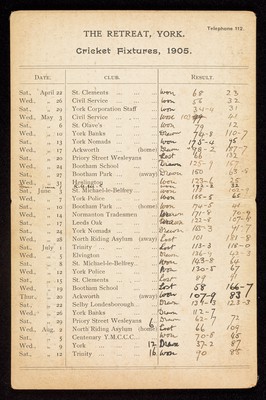 Telephone 112.
THE RETREAT, YORK.
Cricket Fixtures, 1905.
DATE. CLUB. RESULT.
Sat., April 22 St. Clements Won 68 23
Wed., „ 26 Civil Service Won 56 32
Sat., „ 29 York Corporation Staff Won 34-4 31
Wed., May 3 Civil Service 41
Sat., „ 6 St. Olave's Won 79 12
Wed., „ 10 York Banks Draw 74-8 110-7
Sat., „ 13 York Nomads Won 175-4 75
Wed., „ 17 Ackworth (home) Draw 78-2 177-7
Sat., „ 20 Priory Street Wesleyans Lost 66 132
Wed., „ 24 Bootham School 125-7 167
Sat., „ 27 Bootham Park (away) Draw 150 63-6
Wed., „ 31 Heslington Won 123-6 25
Sat., June 3 St. Michael-le-Belfrey
Wed., „ 7 York Police Won 155-5 65
Sat., „ 10 Bootham Park (home) Won 74-5
Wed., „ 14 Normanton Tradesmen 171-8 70-9
Sat., „ 17 Leeds Oak
Sat., „ 24 York Nomads 165-3 41-7
Wed., „ 28 North Riding Asylum (away) Lost 101 181-8
Sat., July 1 Trinity Lost 113-3 118-0
Wed., „ 5 Elvington Draw
Sat., „ 8 St. Michael-le-Belfrey Won 143-8 60
Wed., „ 12 York Police Won 130-5 67
Sat., „ 15 St. Clements Lost 88 91
Wed., „ 19 Bootham School Lost 58 166-7
Thu., „ 20 Ackworth (away) Won 107-9 83
Sat., „ 22 Selby Londesborough Draw 128-3
Wed., „ 26 York Banks Draw 112-7
Sat., „ 29 Priory Street Wesleyans 6 Draw 62-7 72
Wed., Aug. 2 North Riding Asylum (home) Lost 66 109
Sat., „ 5 Centenary Y.M.C.C. Won 70-8 65
Wed., „ 9 York (away) 12 Draw 37-2 87
Sat., „ 12 Trinity 16 Won 90 88